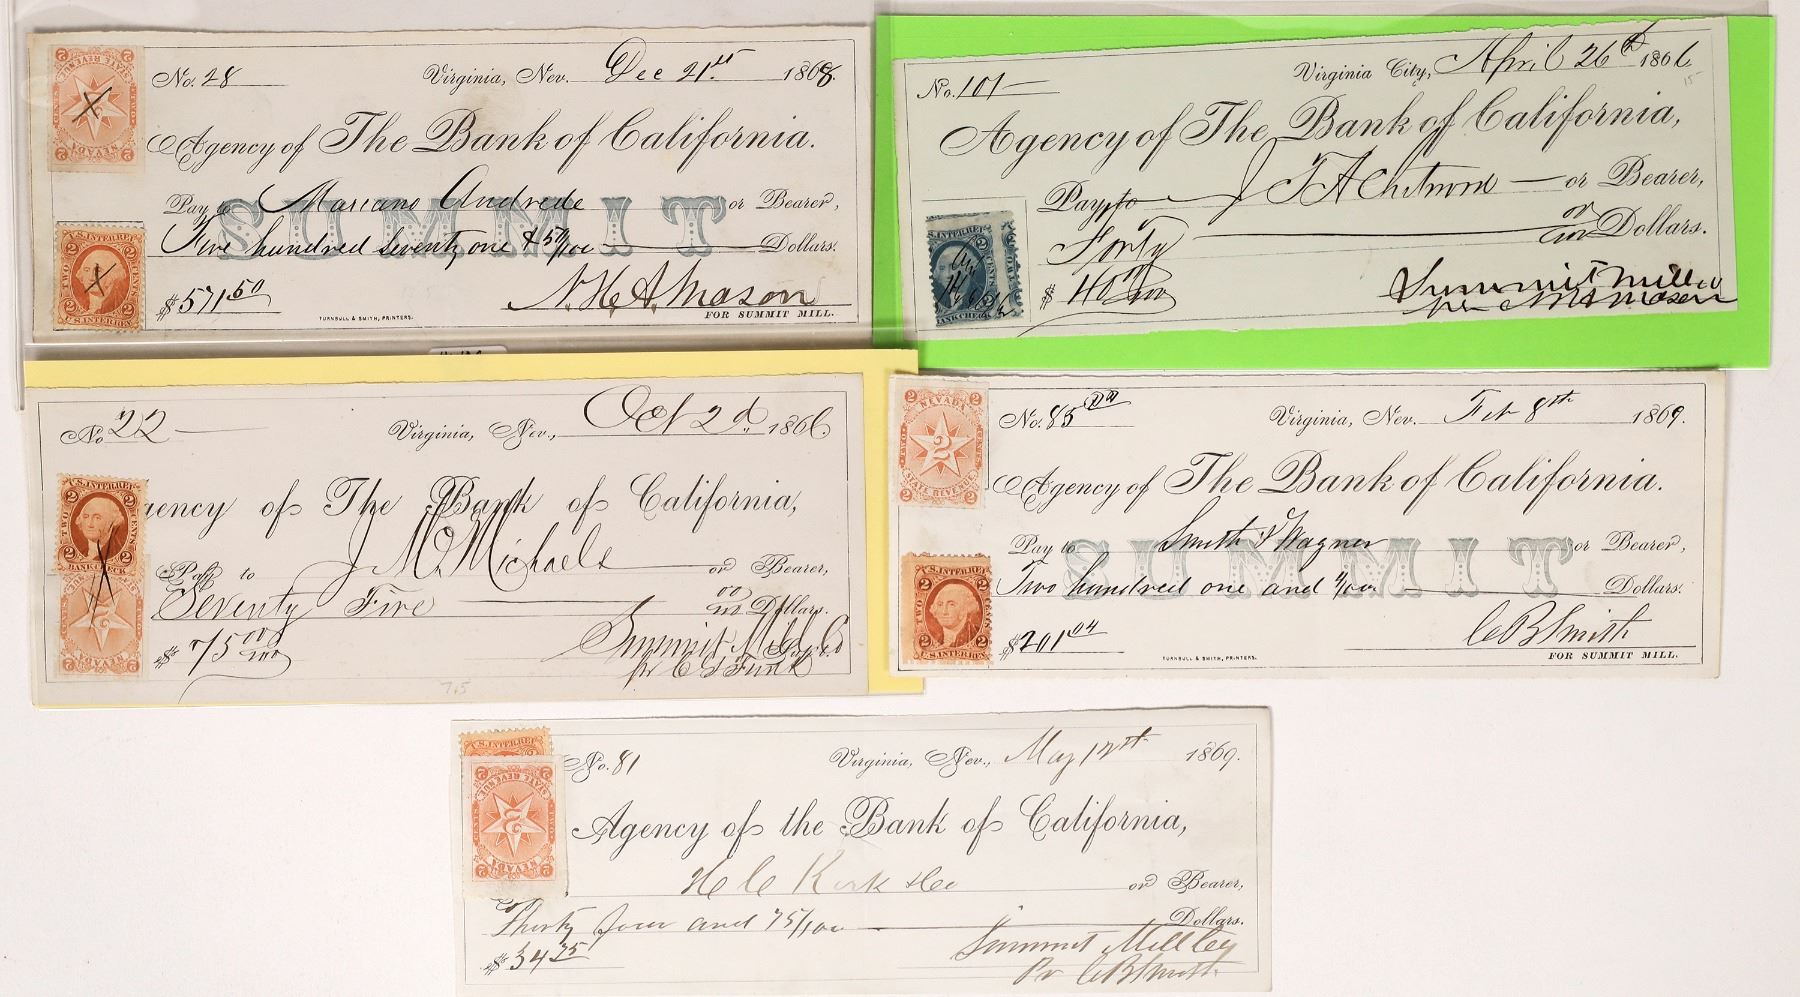 No. 28 Virginia, Nev. Dec 21st 1868.
Agency of The Bank of California.
Pay to Mariano Andrede or Bearer,
SUMMIT
Five hundred seventy one & 50/100 Dollars.
$571.50 N. H. A. Mason
TURNBULL & SMITH, PRINTERS. FOR SUMMIT MILL.
NEVADA
2
TWO CENTS
STATE REVENUE
U.S. INTER. REV.
TWO CENTS
No. 101 Virginia City, April 26th 1866
15
Agency of The Bank of California,
Pay to J T A Chitwood or Bearer,
Forty 00/100 Dollars.
$40 00/100
Summit Mill Co
per N H A Mason
BANK CHECK
No 22 Virginia, Nev., Oct 2d 1866
Agency of The Bank of California,
Pay to J McMichaels or Bearer,
Seventy Five 00/100 Dollars.
$75 00/100 Summit Mill Co
pr C B Funk
75
U.S. INTER. REV.
TWO CENTS
BANK CHECK
No. 85 Virginia, Nev. Feb 8th 1869.
Agency of The Bank of California.
Pay to Smith & Wagner or Bearer,
SUMMIT
Two hundred one and 4/100 Dollars.
$201 04 C B Smith
TURNBULL & SMITH, PRINTERS. FOR SUMMIT MILL.
NEVADA
2
TWO CENTS
STATE REVENUE
U.S. INTER. REV.
TWO CENTS
No. 81 Virginia, Nev., May 1869.
Agency of the Bank of California,
H C Kirk & Co or Bearer,
Thirty four and 75/100 Dollars.
$34 75 Summit Mill Co
Pr C B Smith
U.S. INTER. REV.
STATE REVENUE
2
TWO CENTS
NEVADA